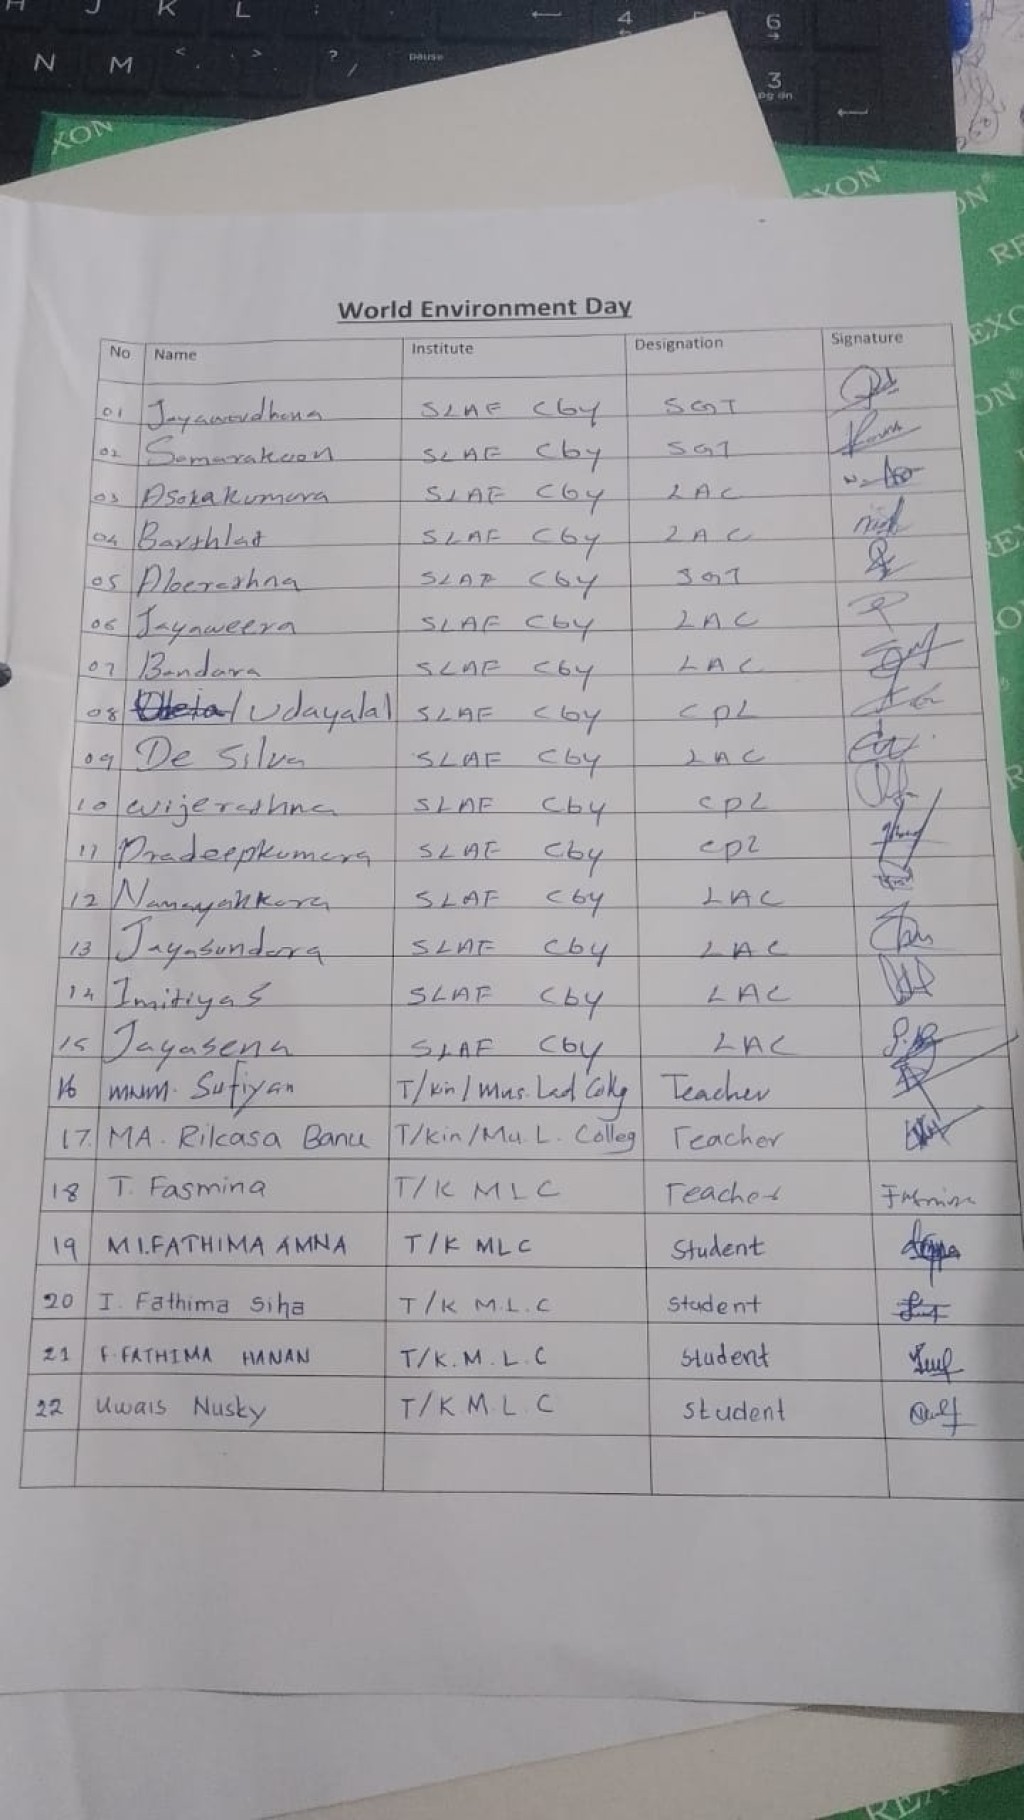 H J K L : ←  4 6 →
N M < . > . ? / pause 3 pg dn ←
XON
EXON
REXON
World Environment Day
No Name Institute Designation Signature
01 Jayawardhana SLAF Cby SGT
02 Samarakoon SLAF Cby SGT
03 Asoka Kumara SLAF Cby LAC
04 Barthlat SLAF Cby LAC
05 Aberathna SLAF Cby SGT
06 Jayaweera SLAF Cby LAC
07 Bandara SLAF Cby LAC
08 / Udayalal SLAF Cby CPL
09 De Silva SLAF Cby LAC
10 Wijerathna SLAF Cby CPL
11 Pradeepkumara SLAF Cby CPL
12 Nanayakkara SLAF Cby LAC
13 Jayasundara SLAF Cby LAC
14 Imitiyas SLAF Cby LAC
15 Jayasena SLAF Cby LAC
16 MNM. Sufiyan T/Kin/Mus. Lad Collg Teacher
17. MA. Rikasa Banu T/Kin/Mu. L. Colleg Teacher
18 T. Fasmina T/K MLC Teacher Fasmina
19 M.I.FATHIMA AMNA T/K MLC Student
20 I. Fathima Siha T/K M.L.C Student
21 F.FATHIMA HANAN T/K.M.L.C Student
22 Uwais Nusky T/K M.L.C Student